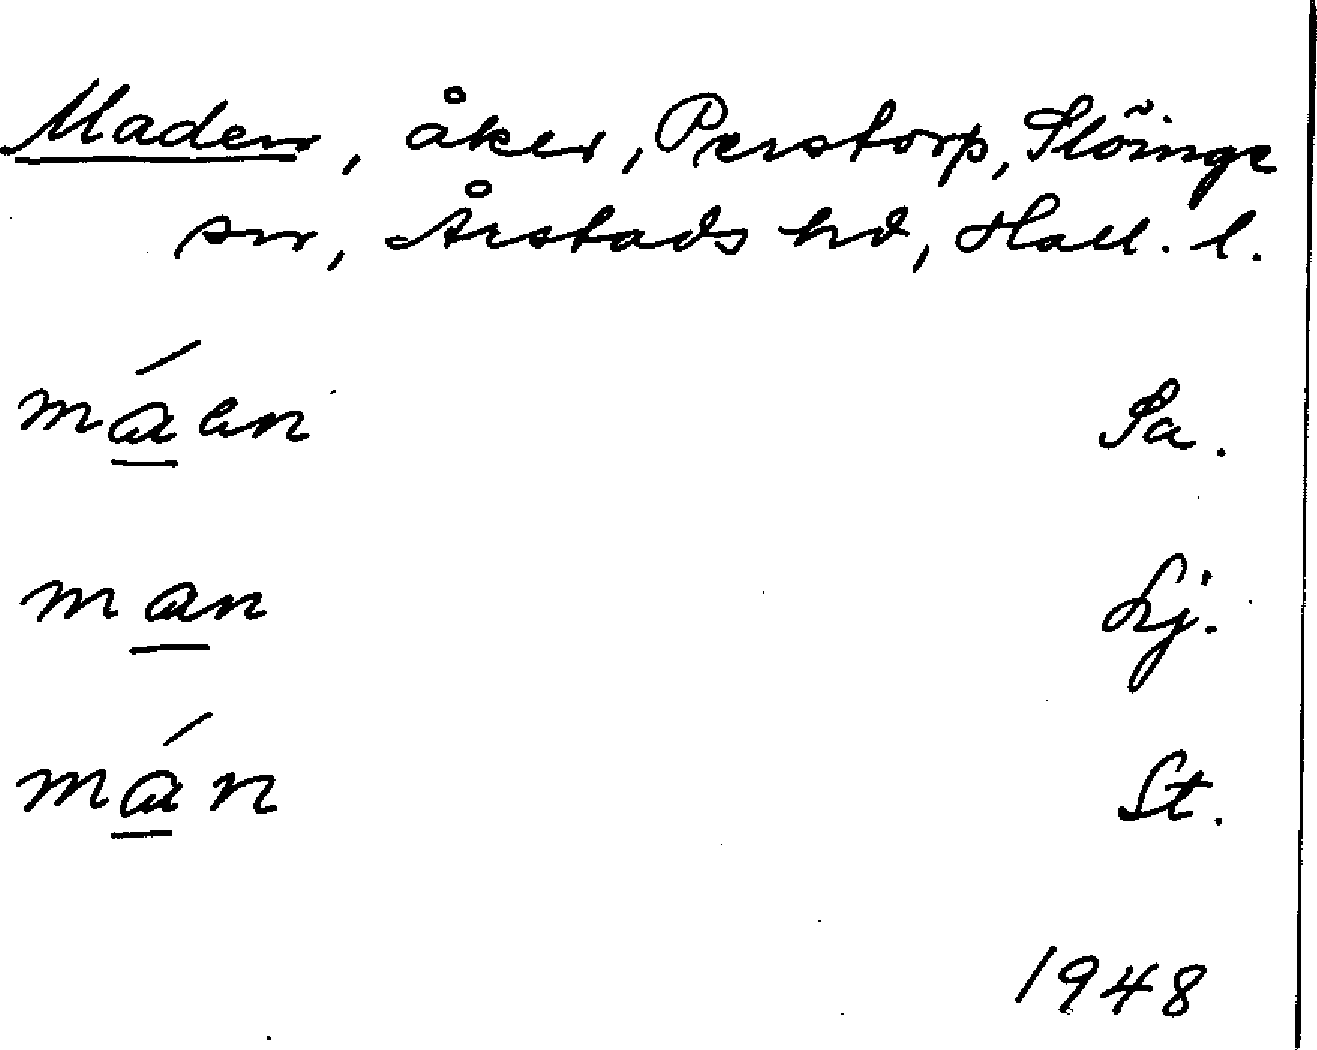 Maden, åker, Perstorp, Slöinge
sn, Årstads hd, Hall. l.
máen Sa.
man Lj.
mán St.
1948